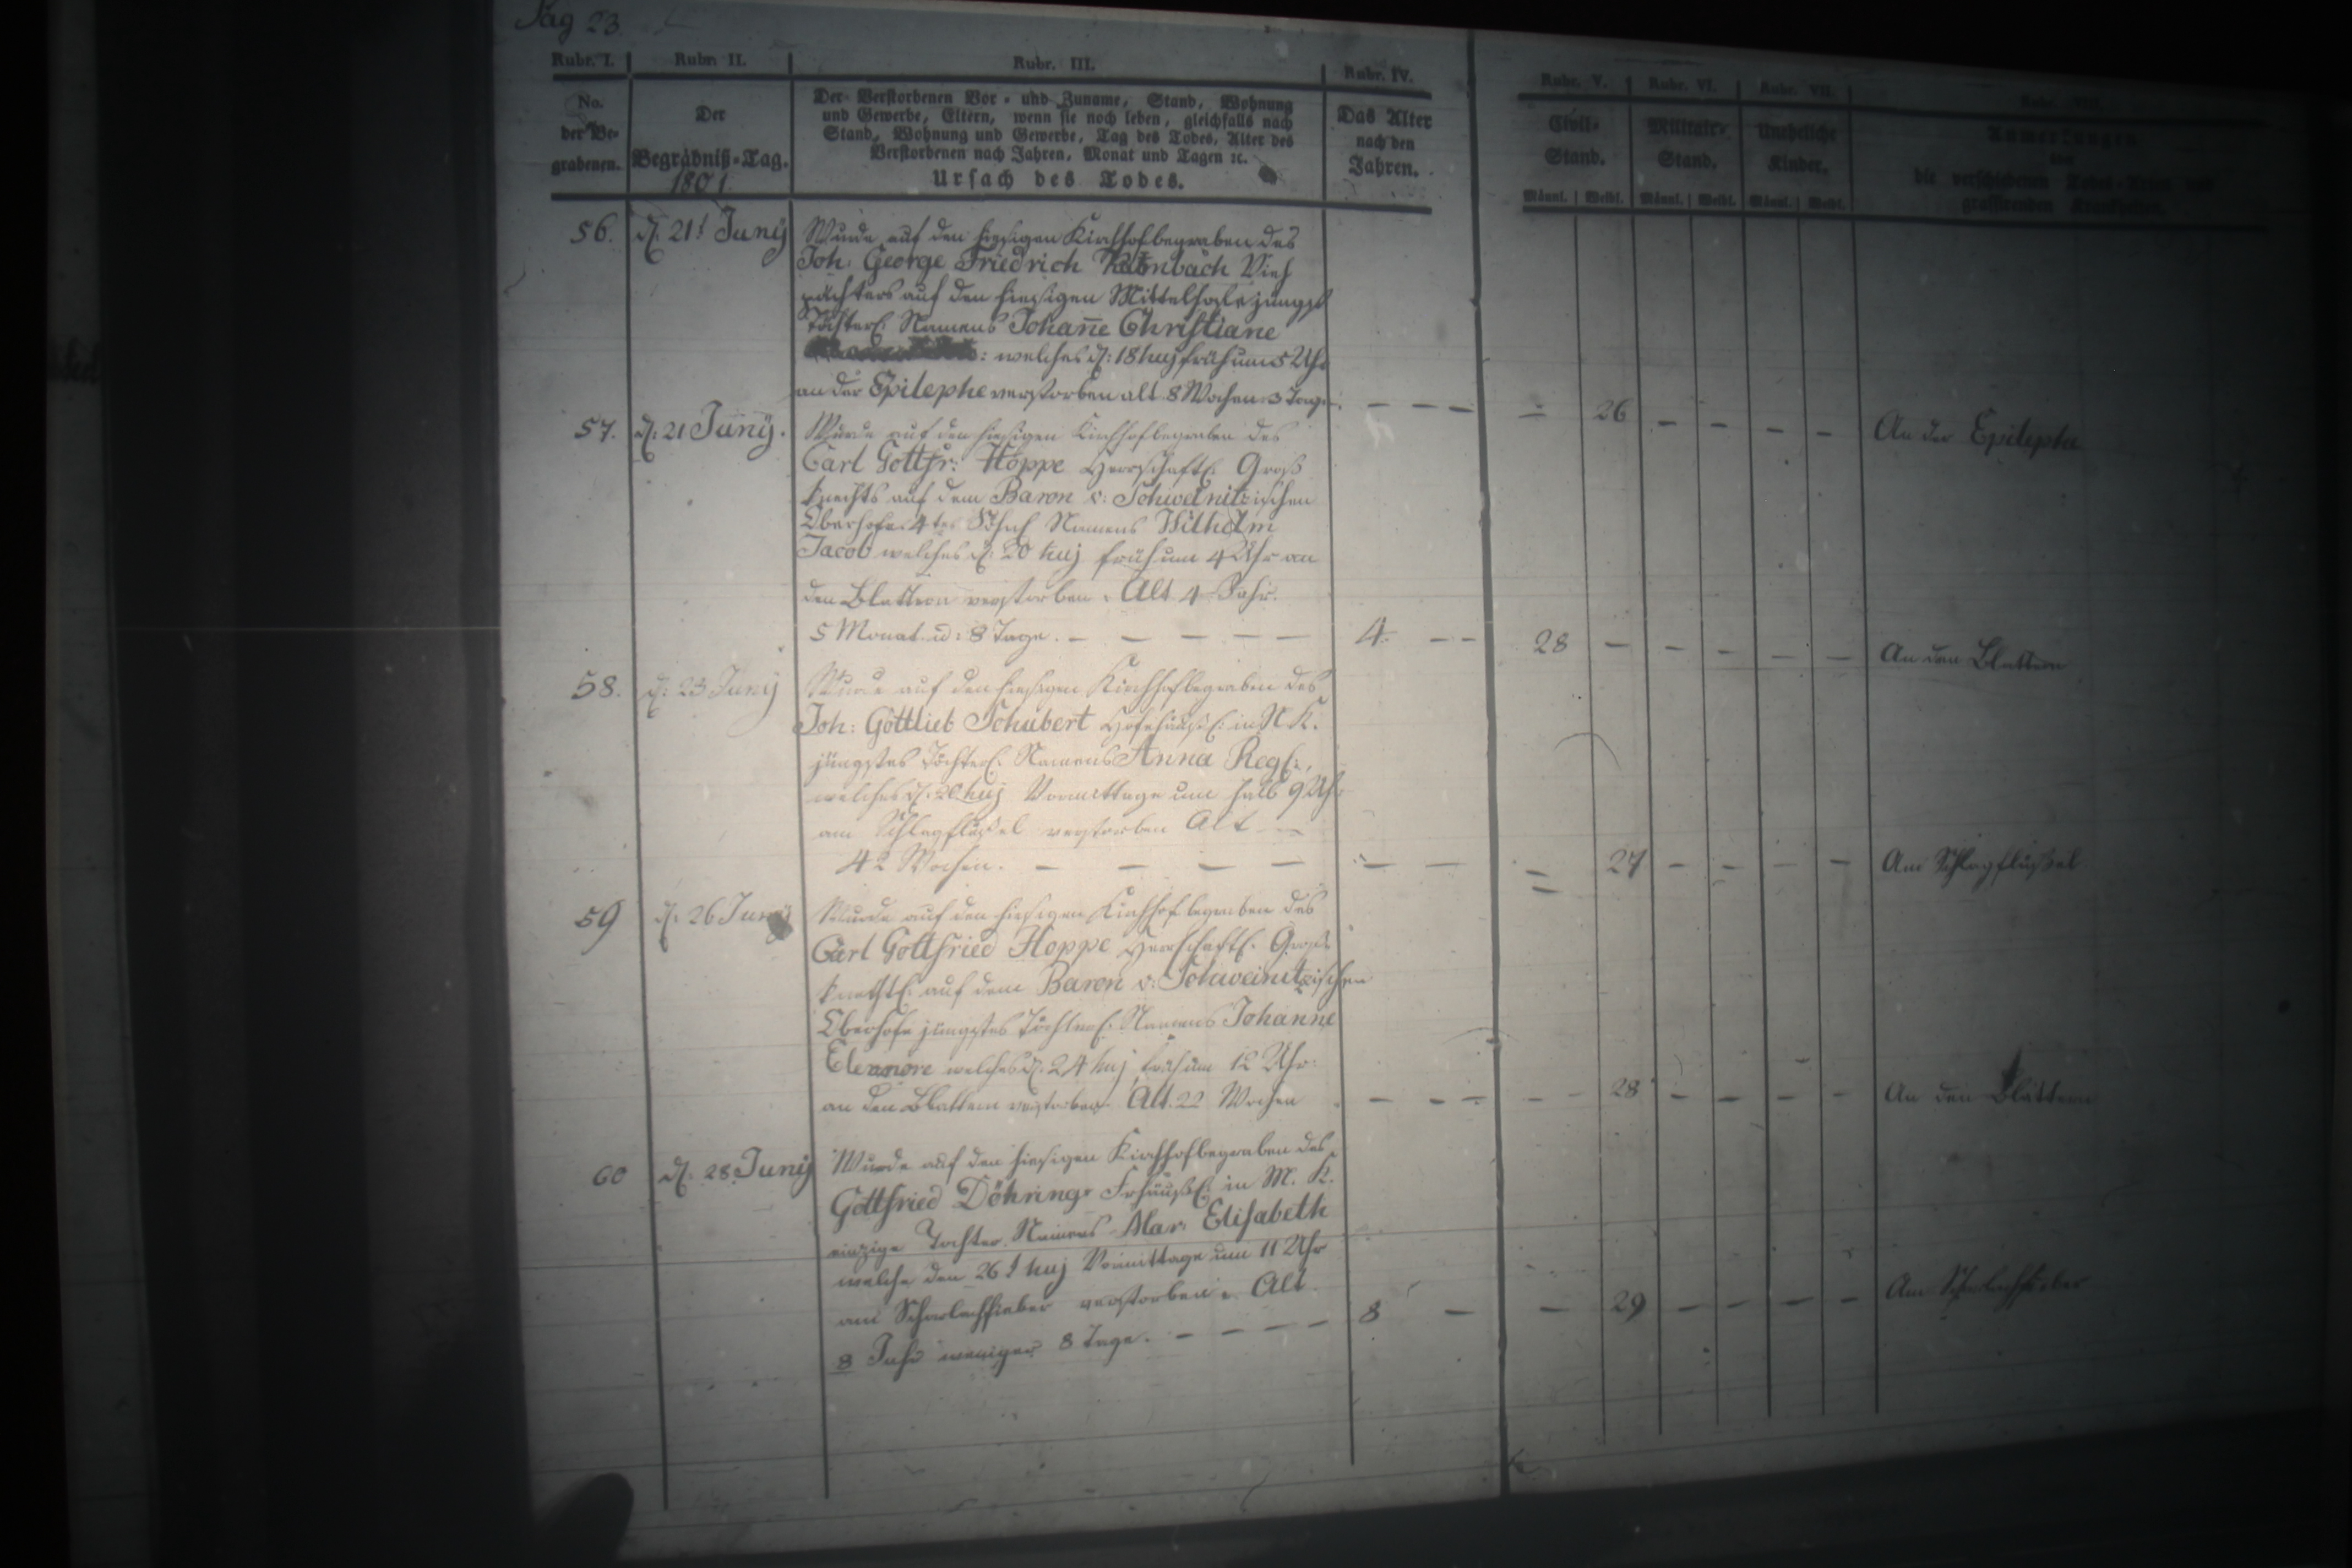 Pag 23.
Rubr. I. Rubr. II. Rubr. III. Rubr. IV. Rubr. V. Rubr. VI. Rubr. VII. Rubr. VIII.
No. der Be-grabenen.
Der Begräbniß-Tag.
1801.
Der Verstorbenen Vor- und Zuname, Stand, Wohnung
und Gewerbe, Eltern, wenn sie noch leben, gleichfalls nach
Stand, Wohnung und Gewerbe, Tag des Todes, Alter des
Verstorbenen nach Jahren, Monat und Tagen ꝛc.
Ursach des Todes.
Das Alter nach den Jahren.
Civil-Stand.
Militair-Stand.
Uneheliche Kinder.
Anmerkungen
über
die verschiedenen Todes-Arten und
grassirenden Krankheiten.
Männl. Weibl. Männl. Weibl. Männl. Weibl.
56. d. 21t Juny Wurde auf den hiesigen Kirchhof begraben des
Joh. George Friedrich Vieh
pächters auf den hiesigen Mittelhofe jüngst
Töchterl. Namens Johan̄e Christiane
: welches d: 18 huj früh um 5 Uhr
an der Epilephe verstorben alt 8 Wochen 3 Tage. – – – – 26 – – – – An der Epilephe
57. d: 21 Juny. Wurde auf den hiesigen Kirchhof begraben des
Carl Gottfr: Hoppe Herrschaftl. Groß
knechts auf dem Baron v: Schweinitzischen
Oberhofe 4tes Söhnl Namens Wilhelm
Jacob welches d: 20 huj früh um 4 Uhr an
den Blattern verstorben. Alt 4 Jahr.
5 Monat u: 8 Tage. – – – – – 4. – – 28 – – – – – An den Blattern
58. d: 23 Juny Wurde auf den hiesigen Kirchhof begraben des
Joh: Gottlieb Schubert in N K.
jüngstes Töchterl. Namens Anna Regl:,
welches d. 20 huj Vormittage um halb 9 Uhr
am Schlagflüßel verstorben Alt
42 Wochen. – – – – – – – 27 – – – – Am Schlagflüßel
59 d: 26 Juny Wurde auf den hiesigen Kirchhof begraben des
Carl Gottfried Hoppe Herrschaftl. Groß
auf dem Baron v: Schweinitzischen
Oberhofe jüngstes Töchterl. Namens Johanne
Eleonore welches d. 24 huj früh um 12 Uhr
an den Blattern verstorben. Alt. 22 Wochen – – – – – 28 – – – – An den Blattern
60 d. 28. Juny Wurde auf den hiesigen Kirchhof begraben des
Gottfried Döhrings in M. K.
einzige Tochter Namens Mar. Elisabeth
welche den 26t huj Vormittage um 11 Uhr
am Scharlachfieber verstorben. Alt.
8 Jahr weniger 8 Tage. – – – – 8 – – 29 – – – – Am Scharlachfieber